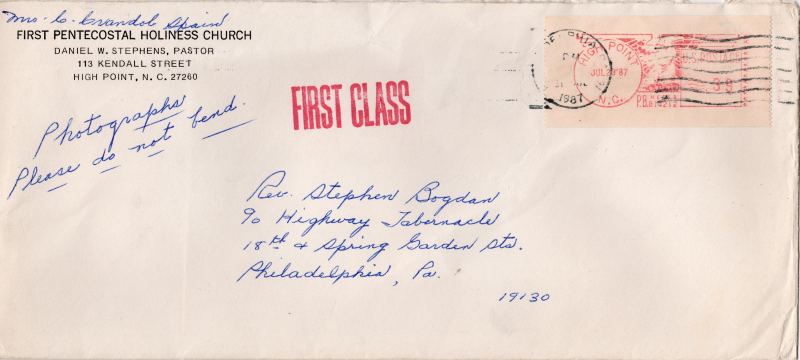 Mrs. C. Crandol Spain
FIRST PENTECOSTAL HOLINESS CHURCH
DANIEL W. STEPHENS, PASTOR
113 KENDALL STREET
HIGH POINT, N. C. 27260
Photographs
Please do not bend.
FIRST CLASS
PHIA
1987
HIGH POINT
JUL 29 '87
N.C.
U.S. POSTAGE
39
P.B.
Rev. Stephen Bogdan
% Highway Tabernacle
18th & Spring Garden Sts.
Philadelphia, Pa.
19130